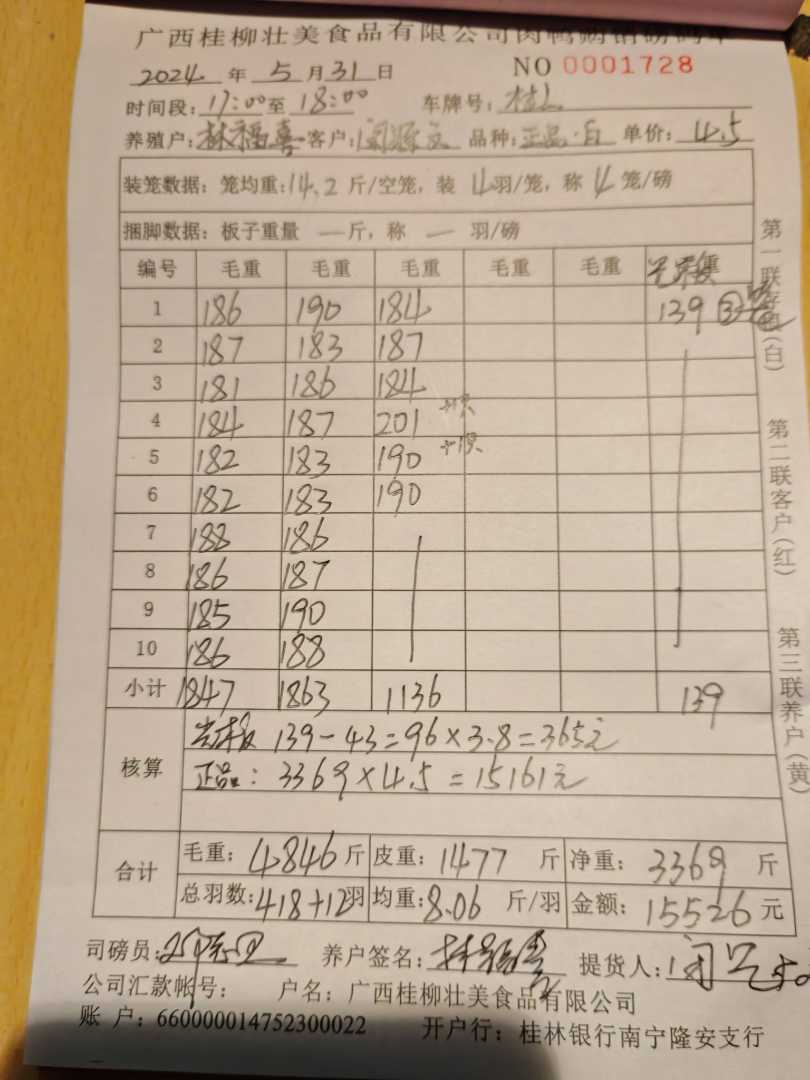 广西桂柳壮美食品有限公司肉鸭购销磅码单
2024 年 5 月 31 日 NO 0001728
时间段: 17:00 至 18:00 车牌号:
养殖户: 林福喜 客户: 品种: 正品·白 单价: 4.5
装笼数据: 笼均重: 14.2 斤/空笼, 装 4 羽/笼, 称 4 笼/磅
捆脚数据: 板子重量 — 斤, 称 — 羽/磅
编号 毛重 毛重 毛重 毛重 毛重 重
1 186 190 184 139
2 187 183 187
3 181 186 184
4 184 187 201 +1只
5 182 183 190 +1只
6 182 183 190
7 188 186
8 186 187
9 185 190
10 186 188
小计 1847 1863 1136 139
核算 139-43=96×3.8=365元
正品: 3369×4.5=15161元
合计 毛重: 4846 斤 皮重: 1477 斤 净重: 3369 斤
总羽数: 418+12 羽 均重: 8.06 斤/羽 金额: 15526 元
司磅员: 养户签名: 林福喜 提货人:
公司汇款帐号: 户名: 广西桂柳壮美食品有限公司
账 户: 660000014752300022 开户行: 桂林银行南宁隆安支行
第一联存根(白)
第二联客户(红)
第三联养户(黄)